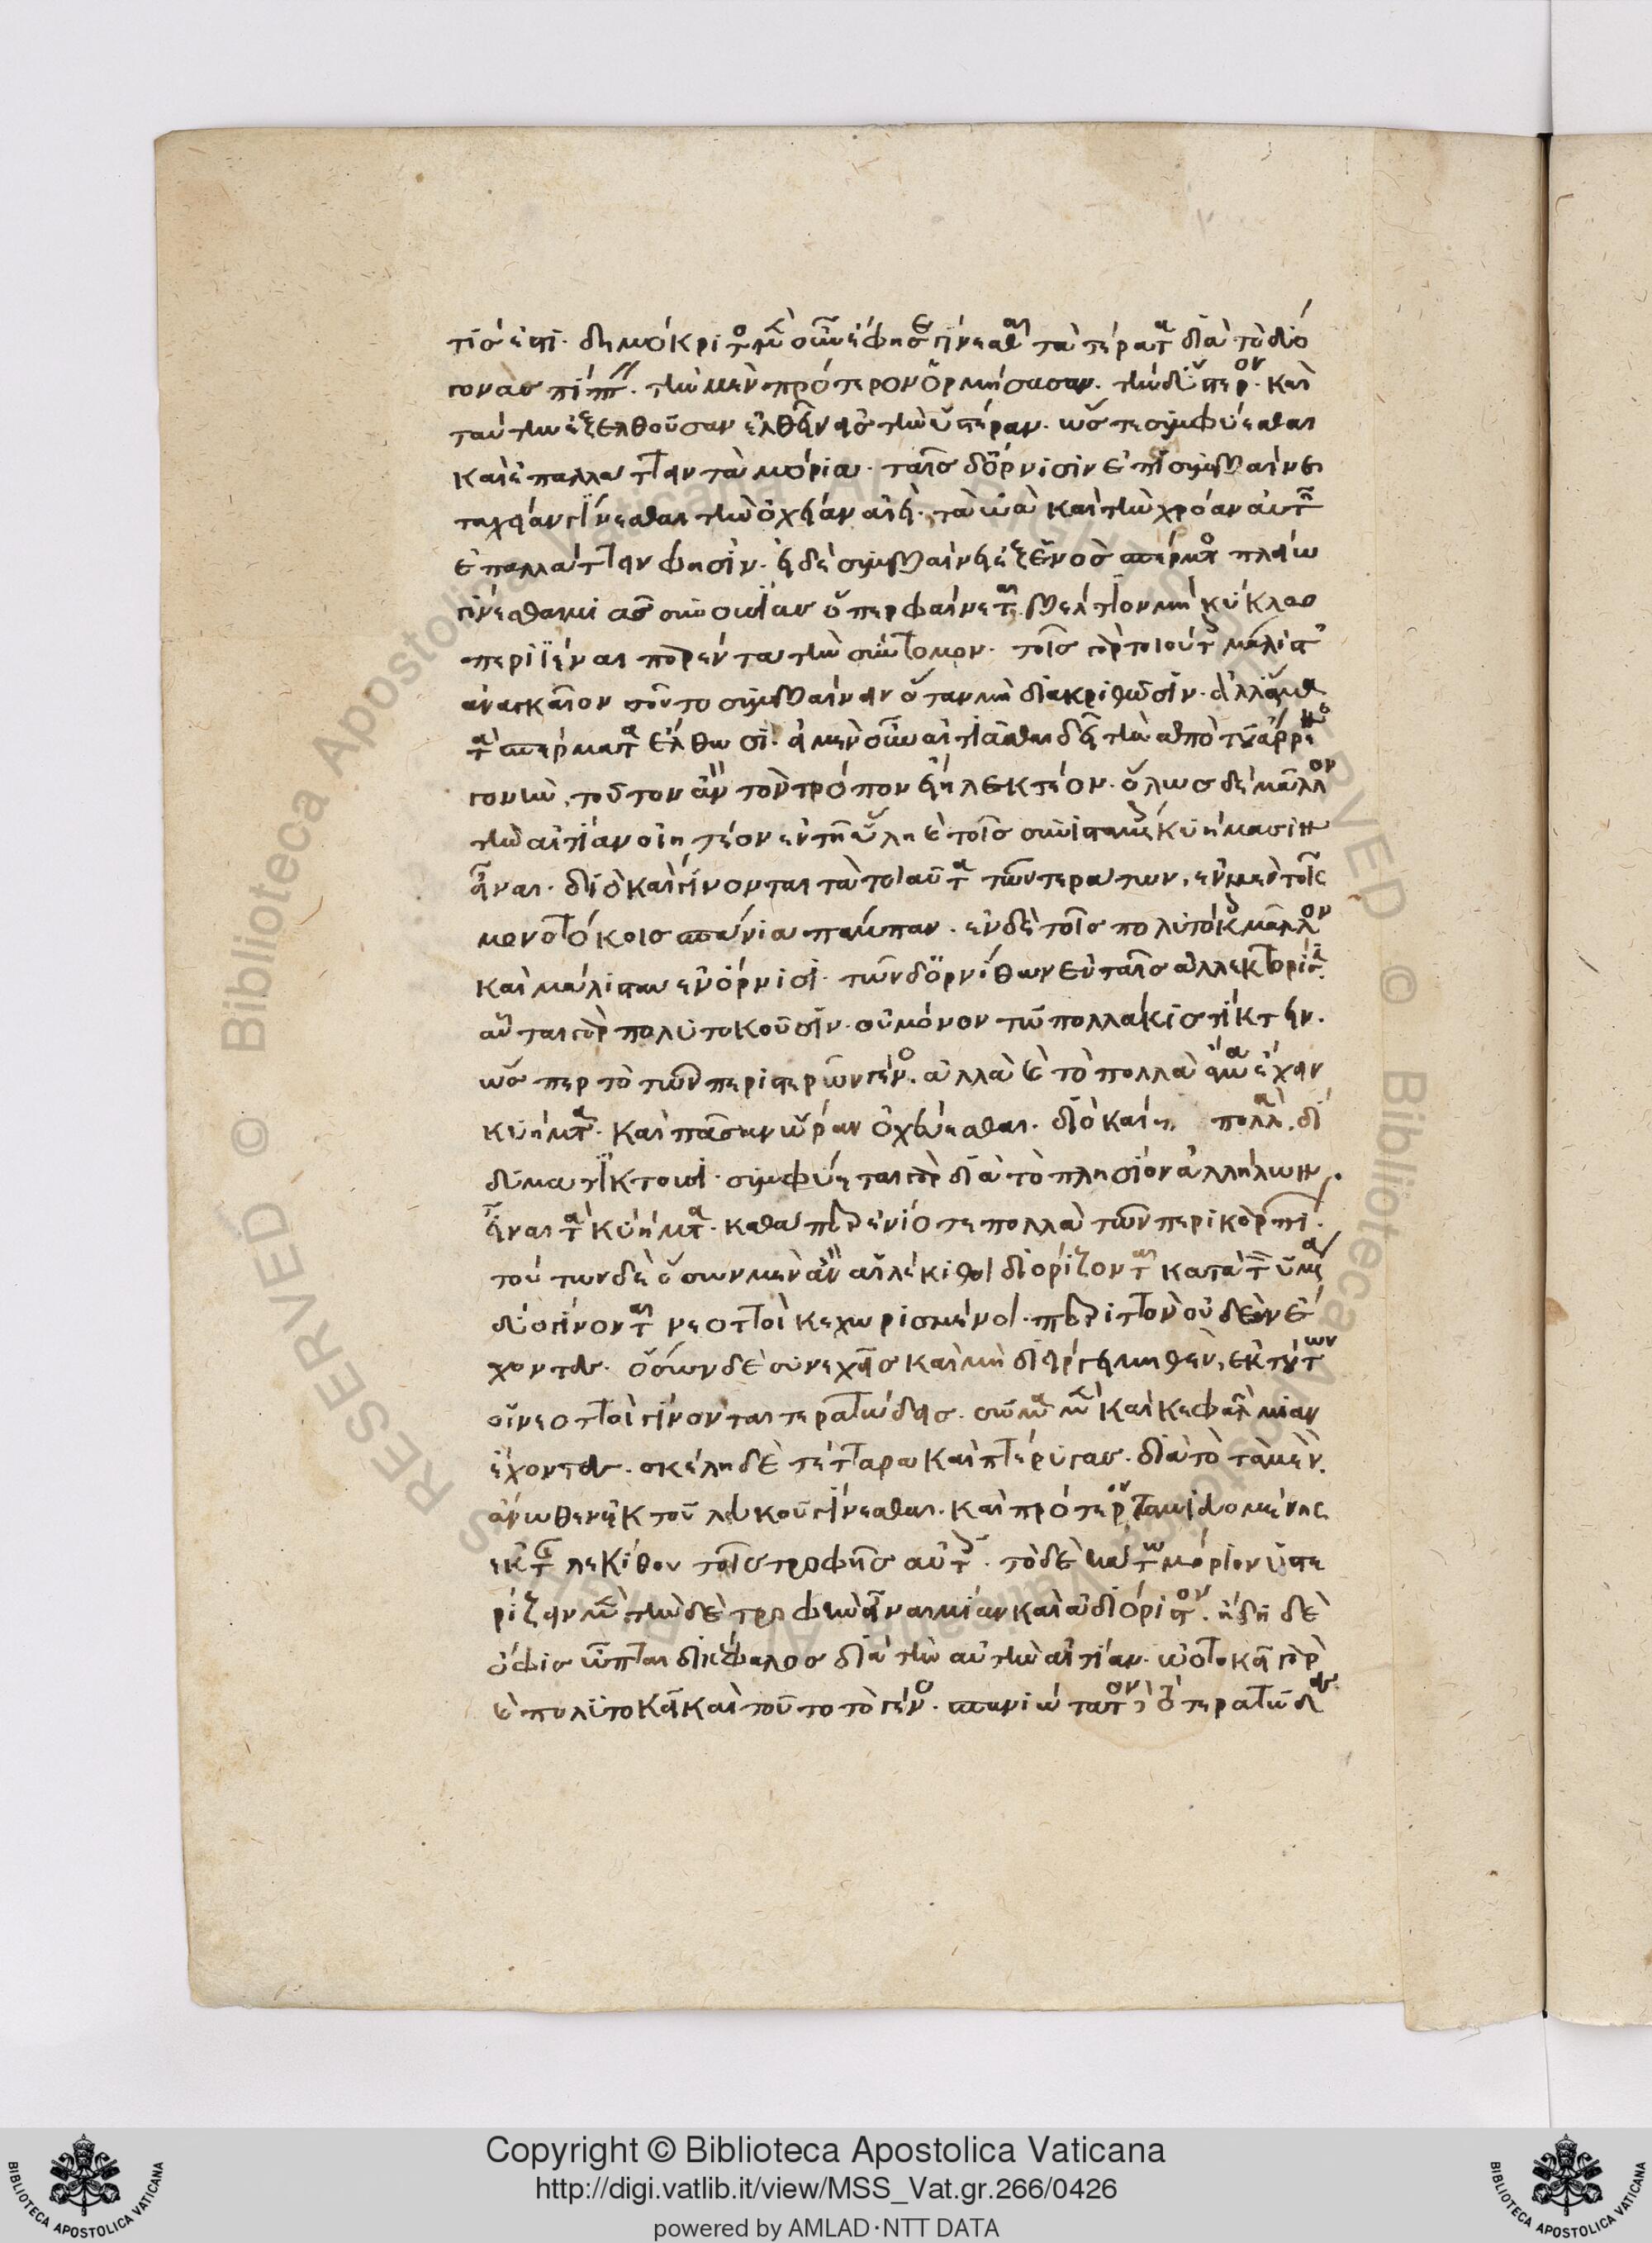 τίς ἐστι. δημόκριτος μὲν οὖν ἔφησε γίνεσθαι τὰ τέρατα διὰ τὸ δύο
γονὰς πίπτειν. τὴν μὲν πρότερον ὁρμήσασαν. τὴν δ' ὕστερον. καὶ
ταύτην ἐξελθοῦσαν ἐλθεῖν εἰς τὴν ὑστέραν. ὥστε συμφύεσθαι
καὶ ἐπαλλάττειν τὰ μόρια. ταῖς δ' ὄρνισιν ἐπεὶ συμβαίνει
ταχεῖαν γίνεσθαι τὴν ὀχείαν ἀεὶ. τὰ ὠὰ καὶ τὴν χρόαν αὐτῶν
ἐπαλλάττειν φησίν. εἰ δὲ συμβαίνει ἐξ ἑνὸς σπέρματος πλείω
γίνεσθαι μιᾶς συνουσίας ὅπερ φαίνεται. βέλτιον μὴ κύκλας
περιϊέναι παρέντα τὴν σύντομον. τοῖς γὰρ τοιούτοις μάλιστα
ἀναγκαῖον τοῦτο συμβαίνειν ὅταν μὴ διακριθῶσιν. ἀλλ' ἅμα
τὰ σπέρματα ἔλθωσι. εἰ μὲν οὖν αἰτιᾶσθαι δεῖ τὴν ἀπὸ τοῦ ἄρρενος
γονὴν. τοῦτον ἂν τὸν τρόπον εἴη λεκτέον. ὅλως δὲ μᾶλλον
τὴν αἰτίαν οἰητέον ἐν τῇ ὕλῃ καὶ τοῖς συνισταμένοις κυήμασιν
εἶναι. διὸ καὶ γίνονται τὰ τοιαῦτα τῶν τεράτων. ἐν μὲν τοῖς
μονοτόκοις σπάνια πάμπαν. ἐν δὲ τοῖς πολυτόκοις μᾶλλον
καὶ μάλιστα ἐν ὄρνισι. τῶν δ' ὀρνίθων ἐν ταῖς ἀλλεκτορίσι.
αὗται γὰρ πολυτοκοῦσιν. οὐ μόνον τῷ πολλάκις τίκτειν.
ὥσπερ τὸ τῶν περιστερῶν γένος. ἀλλὰ καὶ τὸ πολλὰ ἅμα ἔχειν
κυήματα. καὶ πᾶσαν ὥραν ὀχεύεσθαι. διὸ καὶ πολλὰ. δί
δυμα τίκτουσι. συμφύεται γὰρ διὰ τὸ πλησίον ἀλλήλων
εἶναι τὰ κυήματα. καθάπερ ἐνίοτε πολλὰ τῶν περικαρπί.
τούτων δὲ ὅσων μὲν ἂν αἱ λέκιθοι διορίζονται κατὰ τὸν ὑμένα
δύο γίνονται νεοττοὶ κεχωρισμένοι. περιττὸν οὐδὲν ἔ
χοντες. ὅσων δὲ συνεχεῖς καὶ μὴ διείργει μηθὲν. ἐκ τούτων
οἱ νεοττοὶ γίνονται τερατώδεις. σῶμα μὲν καὶ κεφαλὴν μίαν
ἔχοντες. σκέλη δὲ τέτταρα καὶ πτέρυγας. διὰ τὸ τὰ μὲν
ἄνωθεν ἐκ τοῦ λευκοῦ γίνεσθαι. καὶ πρότερον ταμιευομένης
ἐκ τῆς λεκίθου τοῖς τροφῆς αὐτοῖς. τὸ δὲ κάτω μόριον ὑστε
ρίζειν μὲν τὴν δὲ τροφὴν εἶναι μίαν καὶ ἀδιόριστον. ἤδη δὲ
ὄφις ὦπται δικέφαλος διὰ τὴν αὐτὴν αἰτίαν. ὠοτοκεῖ γὰρ
καὶ πολυτοκεῖ καὶ τοῦτο τὸ γένος. σπανιώτατον τὸ τερατῶδες